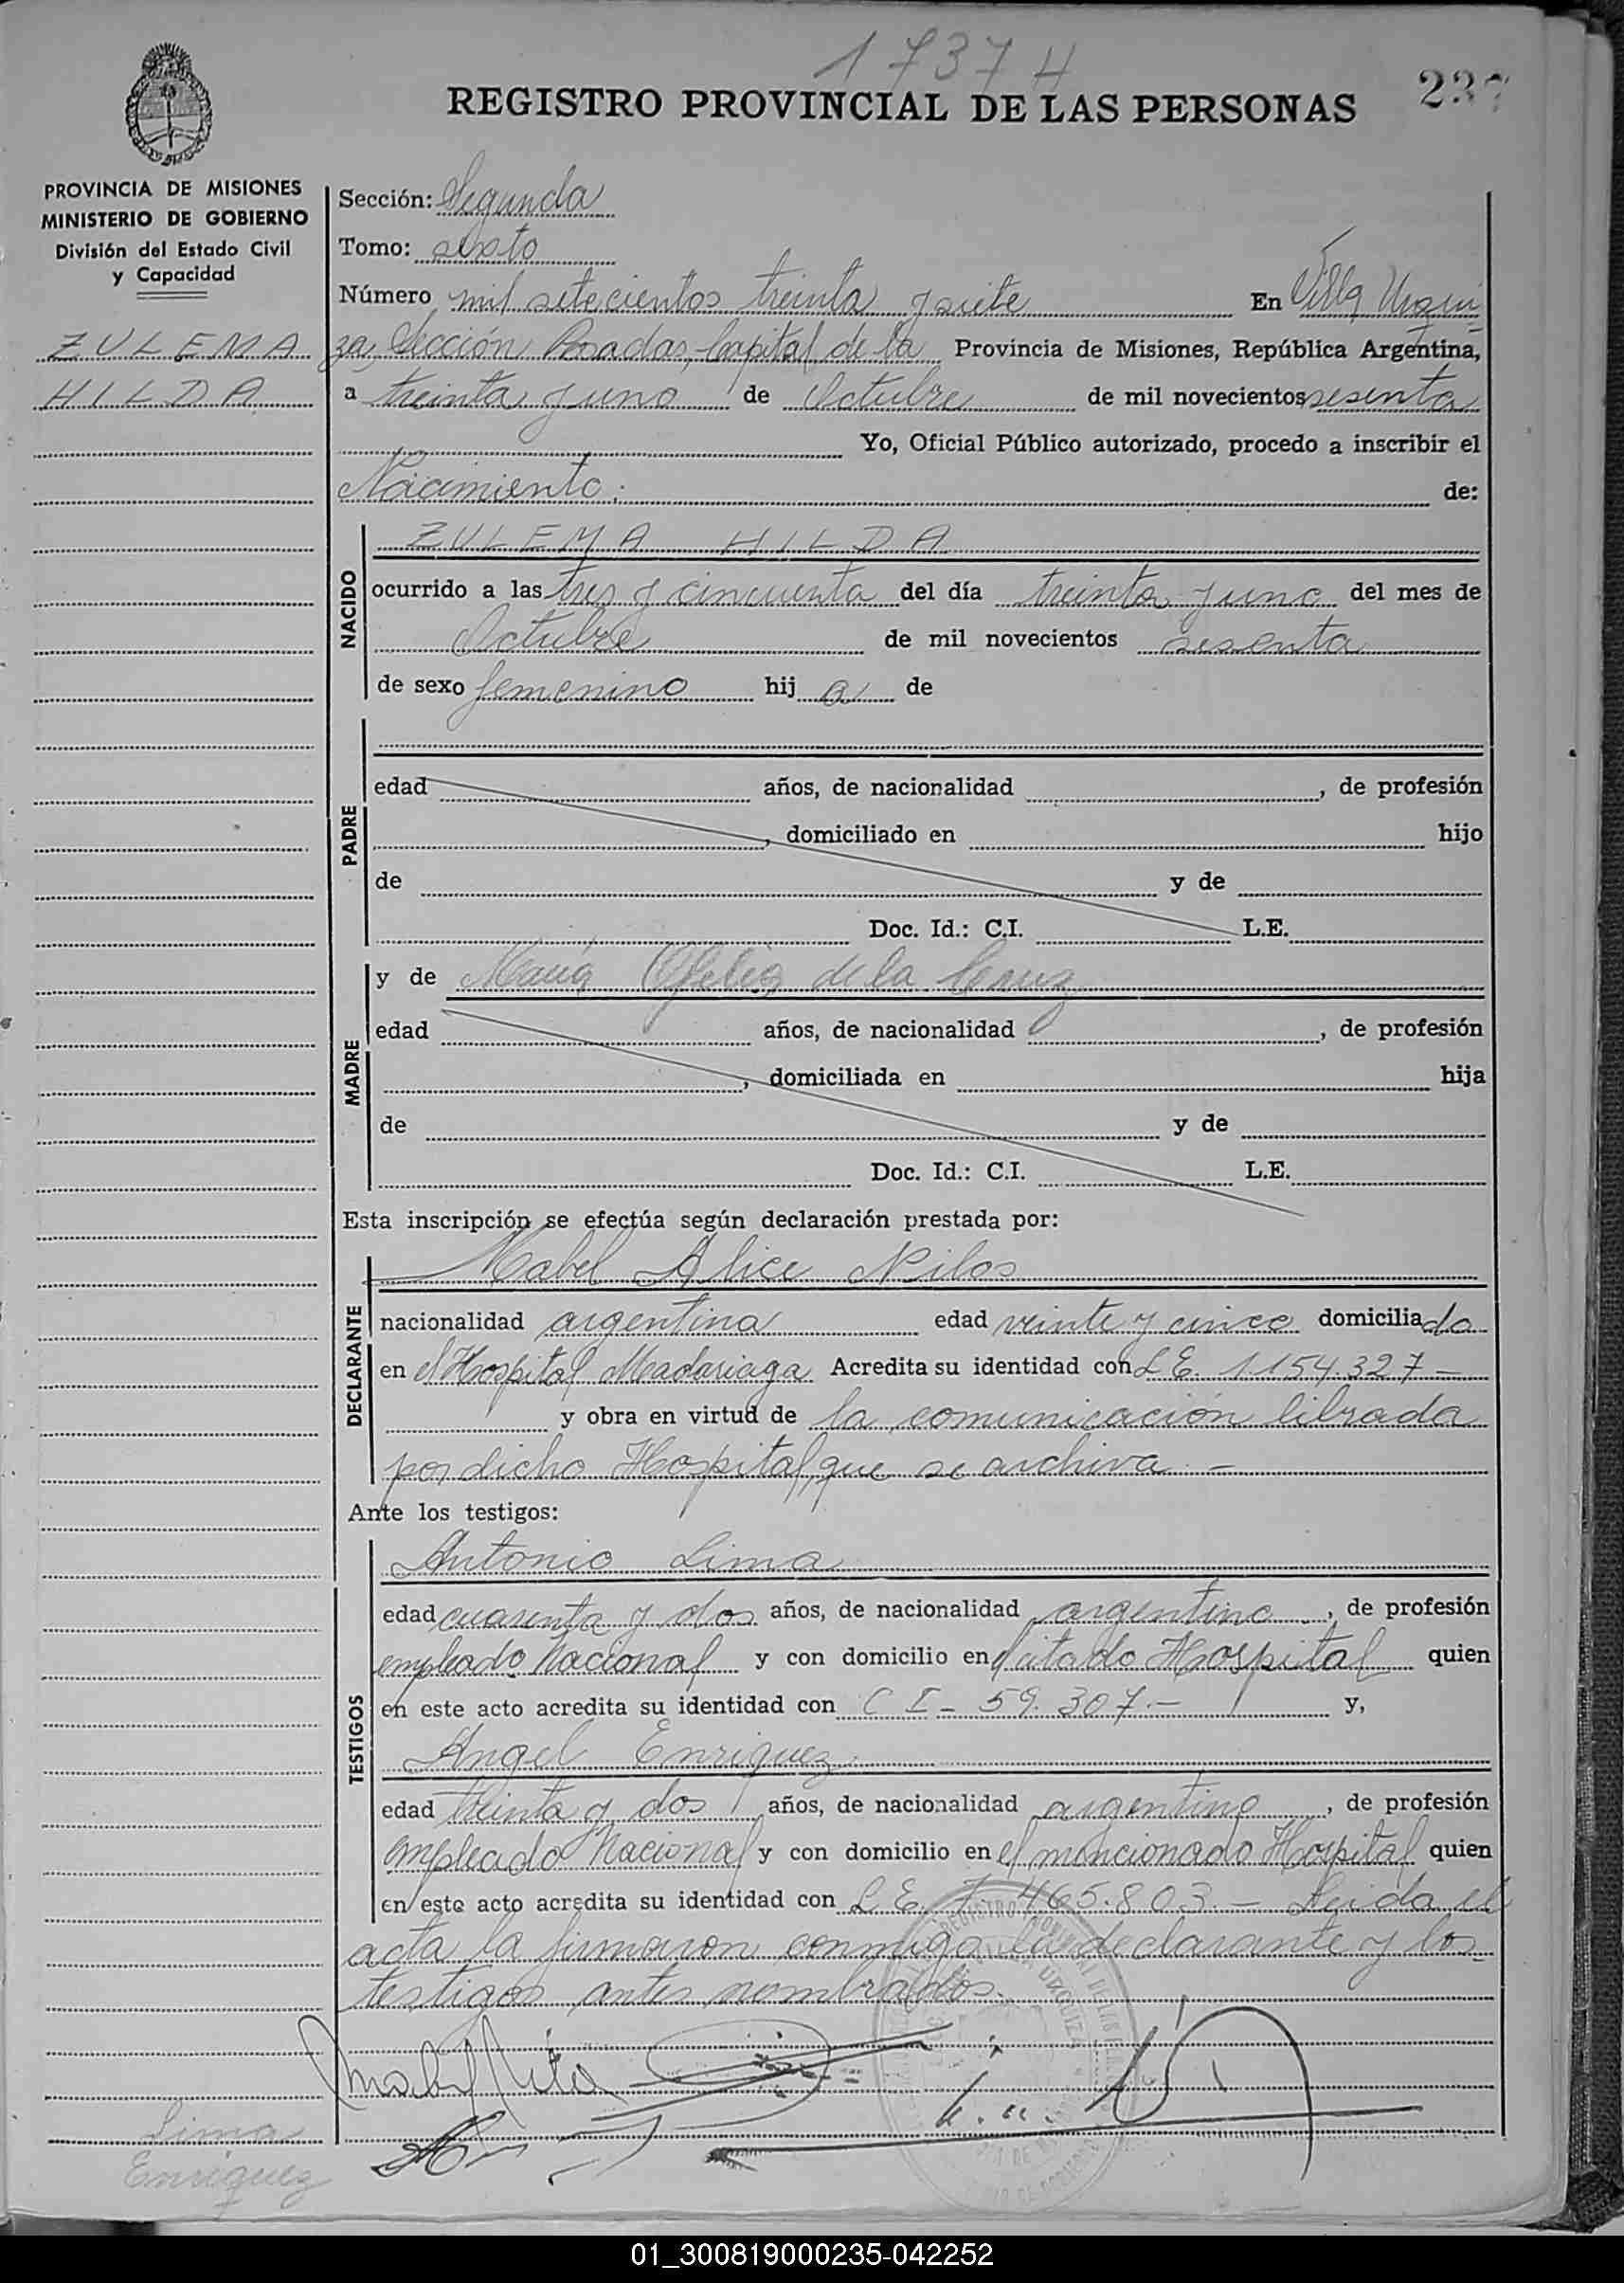 1737 H
REGISTRO PROVINCIAL DE LAS PERSONAS
237
PROVINCIA DE MISIONES
MINISTERIO DE GOBIERNO
División del Estado Civil
y Capacidad
ZULEMA
HILDA
Sección: Segunda
Tomo: sexto
Número mil setecientos treinta y siete En Villa Urqui
za, Sección Posadas, Capital de la Provincia de Misiones, República Argentina,
a treinta y uno de Octubre de mil novecientos sesenta
Yo, Oficial Público autorizado, procedo a inscribir el
Nacimiento: de:
NACIDO
ZULEMA HILDA
ocurrido a las tres y cincuenta del día treinta y uno del mes de
Octubre de mil novecientos sesenta
de sexo femenino hij a de
PADRE
edad años, de nacionalidad , de profesión
, domiciliado en hijo
de y de
Doc. Id.: C.I. L.E.
MADRE
y de María Ofelia de la Cruz
edad años, de nacionalidad , de profesión
, domiciliada en hija
de y de
Doc. Id.: C.I. L.E.
Esta inscripción se efectúa según declaración prestada por:
DECLARANTE
Mabel Alice Nilos
nacionalidad argentina edad veinte y cinco domiciliado
en el Hospital Madariaga Acredita su identidad con L E. 1154.327 –
y obra en virtud de la comunicación librada
por dicho Hospital, que se archiva. –
Ante los testigos:
TESTIGOS
Antonio Lima
edad cuarenta y dos años, de nacionalidad argentino , de profesión
empleado Nacional y con domicilio en citado Hospital quien
en este acto acredita su identidad con C I – 59.307.– y,
Angel Enriquez
edad treinta y dos años, de nacionalidad argentino , de profesión
empleado Nacional y con domicilio en el mencionado Hospital quien
en este acto acredita su identidad con L E. 7.465.803.– Leida el
acta la firmaron conmigo la declarante y los
testigos antes nombrados.
Lima
Enriquez
01_300819000235-042252